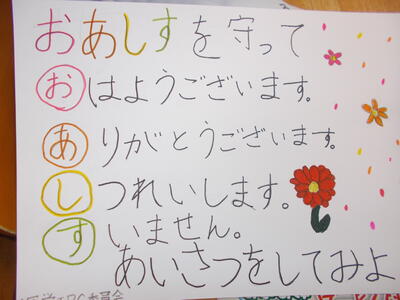 おあしすを守って
おはようございます。
ありがとうございます。
しつれいします。
すいません。
あいさつをしてみよ